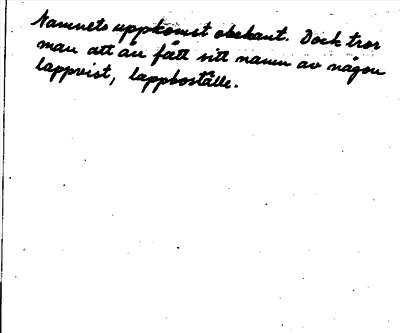 Namnets uppkomst obekant. Dock tror
man att ån fått sitt namn av någon
lappvist, lappboställe.